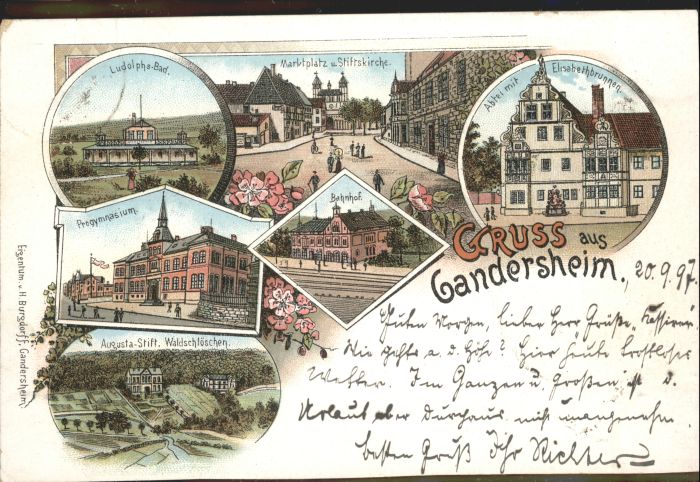 Ludolphs-Bad.
Marktplatz u. Stiftskirche.
Abtei mit Elisabethbrunnen.
Progymnasium.
Bahnhof.
GRUSS aus
Gandersheim.
, 20.9.97.
Augusta-Stift. Waldschlöschen.
Eigentum v. H. Burgdorff, Gandersheim
Guten Morgen, lieber Herr Grüße „Kassierer
Wie gehts a. d. Höh? Hier heute trostloses
Wetter. Im Ganzen u. Großen ist d.
Urlaub aber durchaus nicht unangenehm.
besten Gruß Ihr Richter